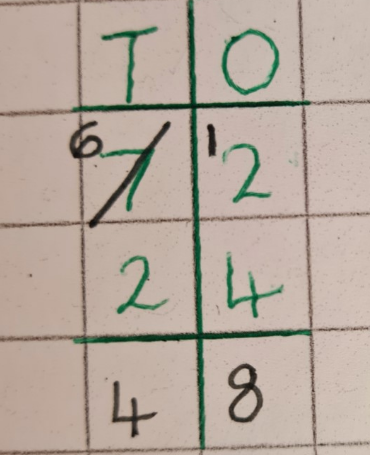 T O
6 7 1 2
2 4
4 8